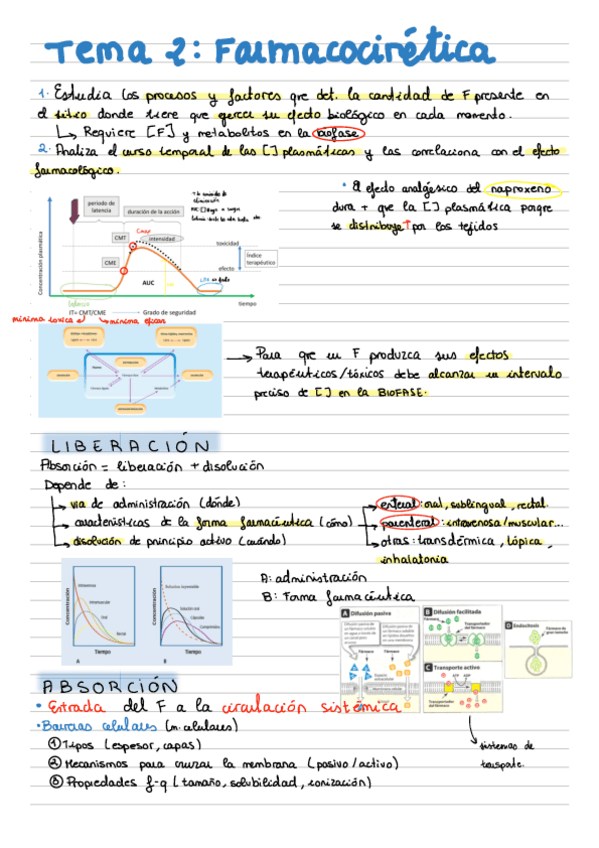 Tema 2: Farmacocinética
1. Estudia los procesos y factores que det. la cantidad de F presente en
el sitio donde tiene que ejercer su efecto biológico en cada momento.
↳ Requiere [F] y metabolitos en la biofase
2. Analiza el curso temporal de las [] plasmáticas y las correlaciona con el efecto
farmacológico.
• El efecto analgésico del naproxeno
dura + que la [] plasmática porque
se distribuye ↑ por los tejidos
periodo de
latencia
duración de la acción
Cmax
CMT
intensidad
toxicidad
CME
efecto
índice
terapéutico
AUC
Concentración plasmática
tiempo
IT= CMT/CME → Grado de seguridad
mínima tóxica
mínima eficaz
→ Para que un F produzca sus efectos
terapéuticos/tóxicos debe alcanzar un intervalo
preciso de [] en la BIOFASE.
LIBERACIÓN
Absorción = liberación + disolución
Depende de:
↳ via de administración (dónde)
↳ características de la forma farmacéutica (cómo)
↳ disolución de principio activo (cuándo)
→ enteral: oral, sublingual, rectal.
→ parenteral: intravenosa/muscular...
→ otras: transdérmica, tópica,
inhalatoria
A: administración
B: Forma farmacéutica
Concentración
Intravenosa
Intramuscular
Oral
Rectal
Tiempo
A
Concentración
Solución oral
Cápsulas
Comprimidos
Tiempo
B
A Difusión pasiva
Fármaco
Fármaco
Espacio
extracelular
Membrana celular
B Difusión facilitada
Fármaco
Transportador
del fármaco
C Transporte activo
Transportador
del fármaco
Fármaco
D Endocitosis
Fármaco de
gran tamaño
↓
sistemas de
transporte.
ABSORCIÓN
• Entrada del F a la circulación sistémica
• Barreras celulares (m. celulares)
① Tipos (espesor, capas)
② Mecanismos para cruzar la membrana (pasivo/activo)
③ Propiedades f-q (tamaño, solubilidad, ionización)